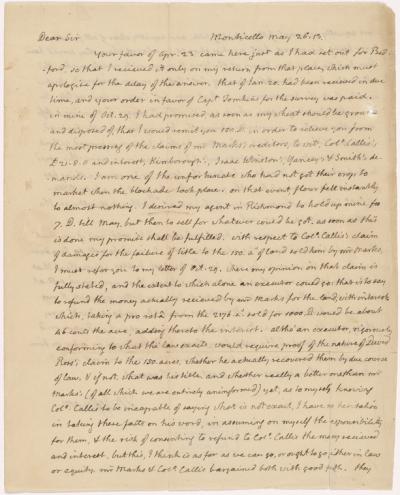 Dear Sir Monticello May 26. 13.
Your favor of Apr. 23 came here just as I had set out for Bed-
ford, so that I recieved it only on my return from that place, which must
apologize for the delay of the answer. that of Jan. 20. had been recieved in due
time, and your order in favor of Capt. Tompkins for the survey was paid.
in mine of Oct. 29. I had promised, as soon as my wheat should be ground
and disposed of that I would remit you 100. D. in order to relieve you from
the most pressing of the claims of mr Marks's creditors, to wit, Colo. Callis's,
£ 21-8-0 and interest, Kimbrough's, Isaac Winston's, Yancey's & Smith's de-
mands. I am one of the unfortunates who had not got their crops to
market when the blockade took place. on that event, flour fell instantly
to almost nothing. I desired my agent in Richmond to hold up mine for
7. D. till May, but then to sell for whatever could be got. as soon as this
is done my promise shall be fulfilled. with respect to Colo. Callis's claim
of damages for the failure of title to the 150. as of land sold him by mr Marks,
I must refer you to my letter of Oct. 29. where my opinion on that claim is
fully stated, and the extent to which alone an executor could go: that is to say
to refund the money actually recieved by mr Marks for the land, with interest
which, taking a pro rata from the as sold for 1000. D. would be about
46 cents the acre, adding thereto the interest. altho' an executor, rigorously
conforming to what the law exacts, would require proof of the nature of David
Ross's claim to the 150 acres, whether he actually recovered them by due course
of law, & if not, what was his title, and whether really a better one than mr
Marks's (of all which we are entirely uninformed) yet, as to myself, knowing
Colo. Callis to be incapable of saying what is not exact, I have no hesitation
in taking these facts on his word, in assuming on myself the responsibility
for them, & the risk of consenting to refund to Colo. Callis the money recieved
and interest, but this, I think is as far as we can go, or ought to go, either in law
or equity. mr Marks & Colo. Callis bargained both with good faith. they